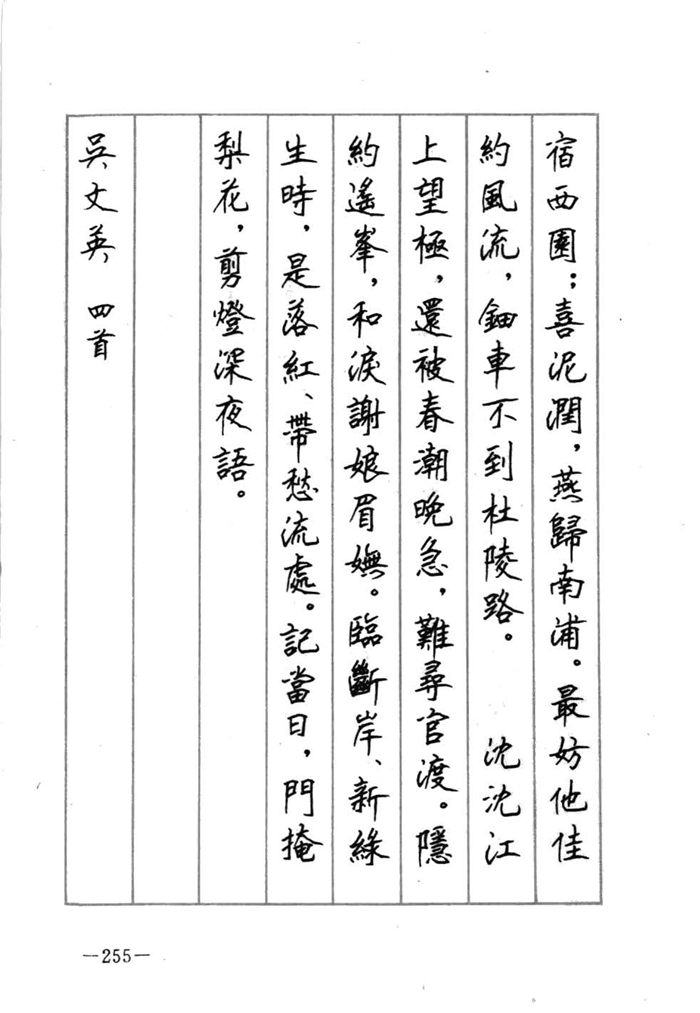 宿西園；喜泥潤，燕歸南浦。最妨他佳
約風流，鈿車不到杜陵路。　沈沈江
上望極，還被春潮晚急，難尋官渡。隱
約遙峯，和淚謝娘眉嫵。臨斷岸、新綠
生時，是落紅、帶愁流處。記當日，門掩
梨花，剪燈深夜語。
吳文英　四首
—255—